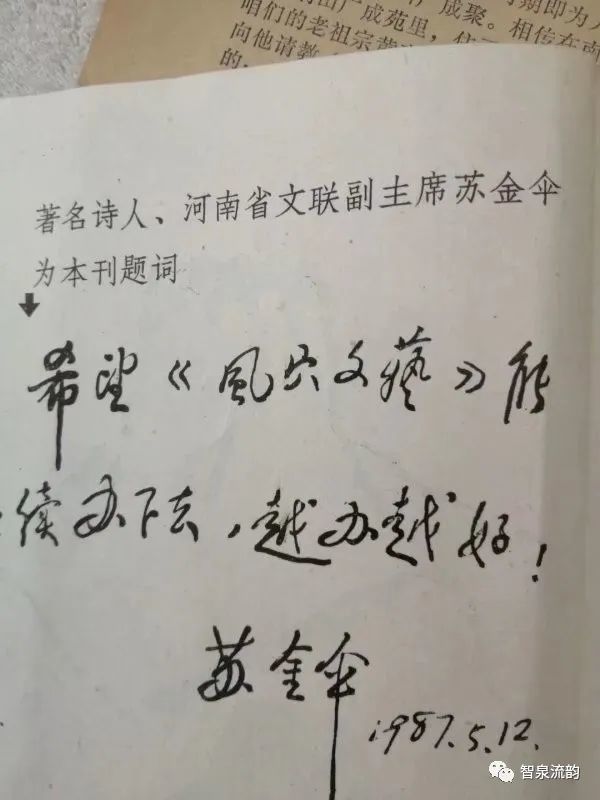 成苑里,
成聚。相传在南
咱们的老祖宗
向他请教
的
著名诗人、河南省文联副主席苏金伞
为本刊题词
希望《風穴文藝》能
续办下去,越办越好!
苏金伞
1987.5.12.
智泉流韵